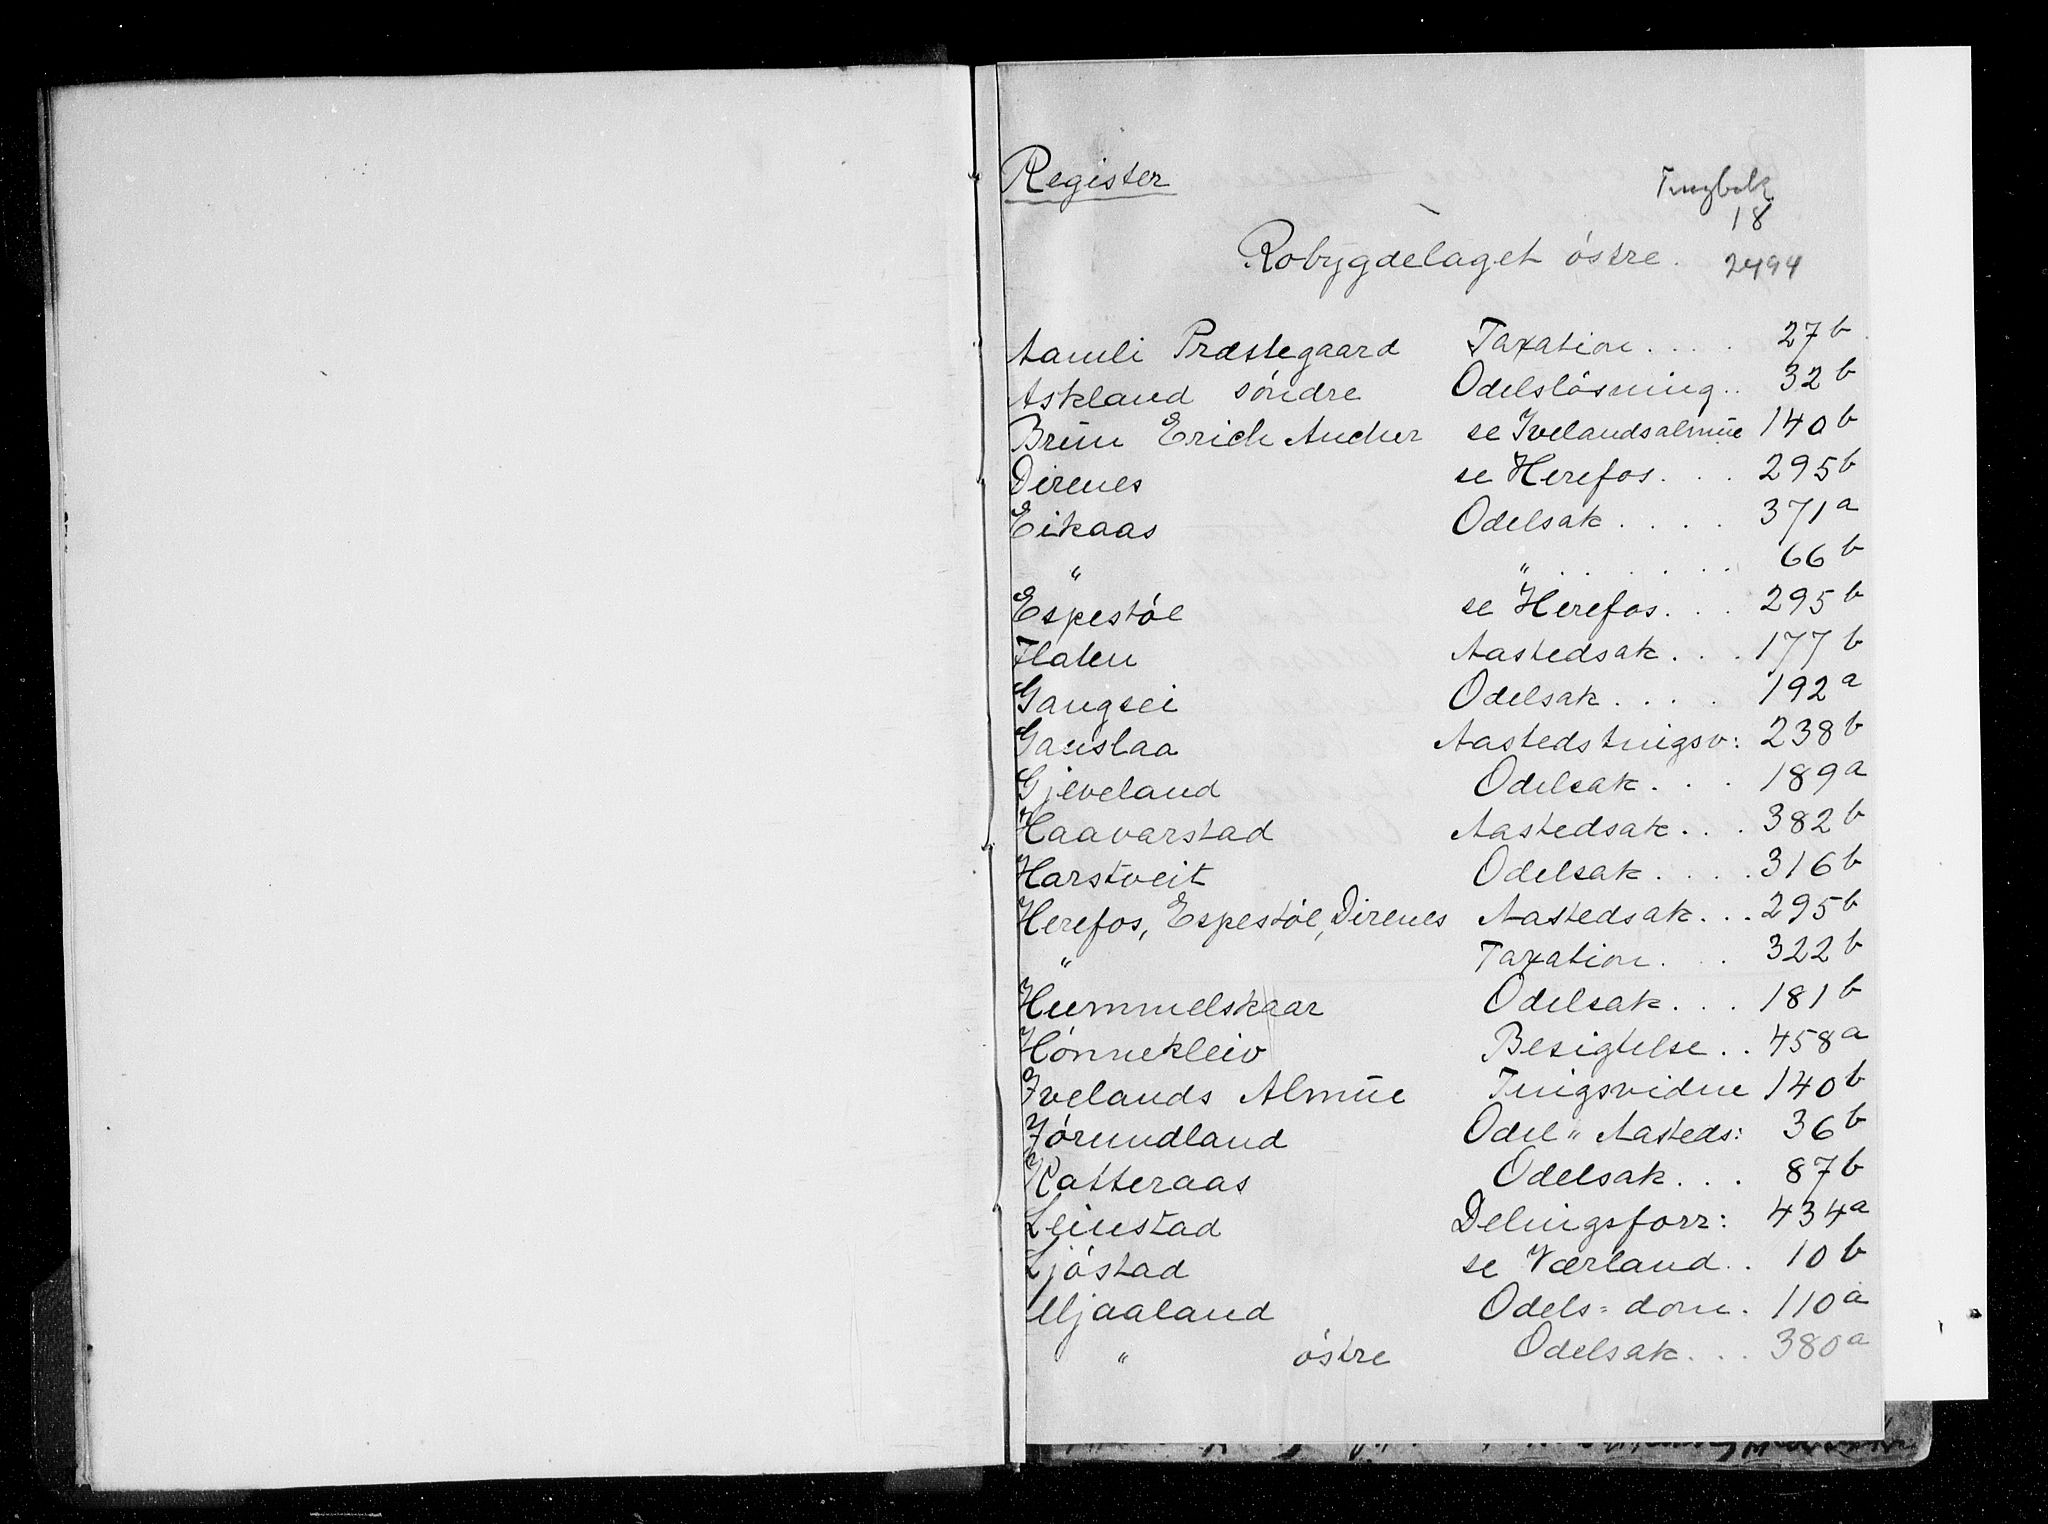 Register
Tingbok
18
Robygdelaget östre. 2494
Aamli Præstegaard Taxation .... 27b
Askland söndre Odelslösning.. 32b
Brün Erich Ancher se Ivelandsalmüe 140b
Direnes se Herefos... 295b
Eikaas Odelsak.... 371a
" "....... 66b
Espestöl se Herefos... 295b
Flaten Aastedsak... 177b
Gangsei Odelsak.... 192a
Gauslaa Aastedstingsv: 238b
Gjeveland Odelsak... 189a
Haavarstad Aastedsak... 382b
Harstveit Odelsak.... 316b
Herefos, Espestöl, Direnes Aastedsak... 295b
" Taxation... 322b
Hummelskaar Odelsak... 181b
Hönnekleiv Besigtelse.. 458a
Ivelands Almüe Tingsvidne 140b
Jörundland Odel " Aasteds: 36b
Katteraas Odelsak... 87b
Leiustad Delingsforr: 434a
Ljöstad se Værland.. 10b
Mjaaland Odels=dom. 110a
" östre Odelsak... 380a